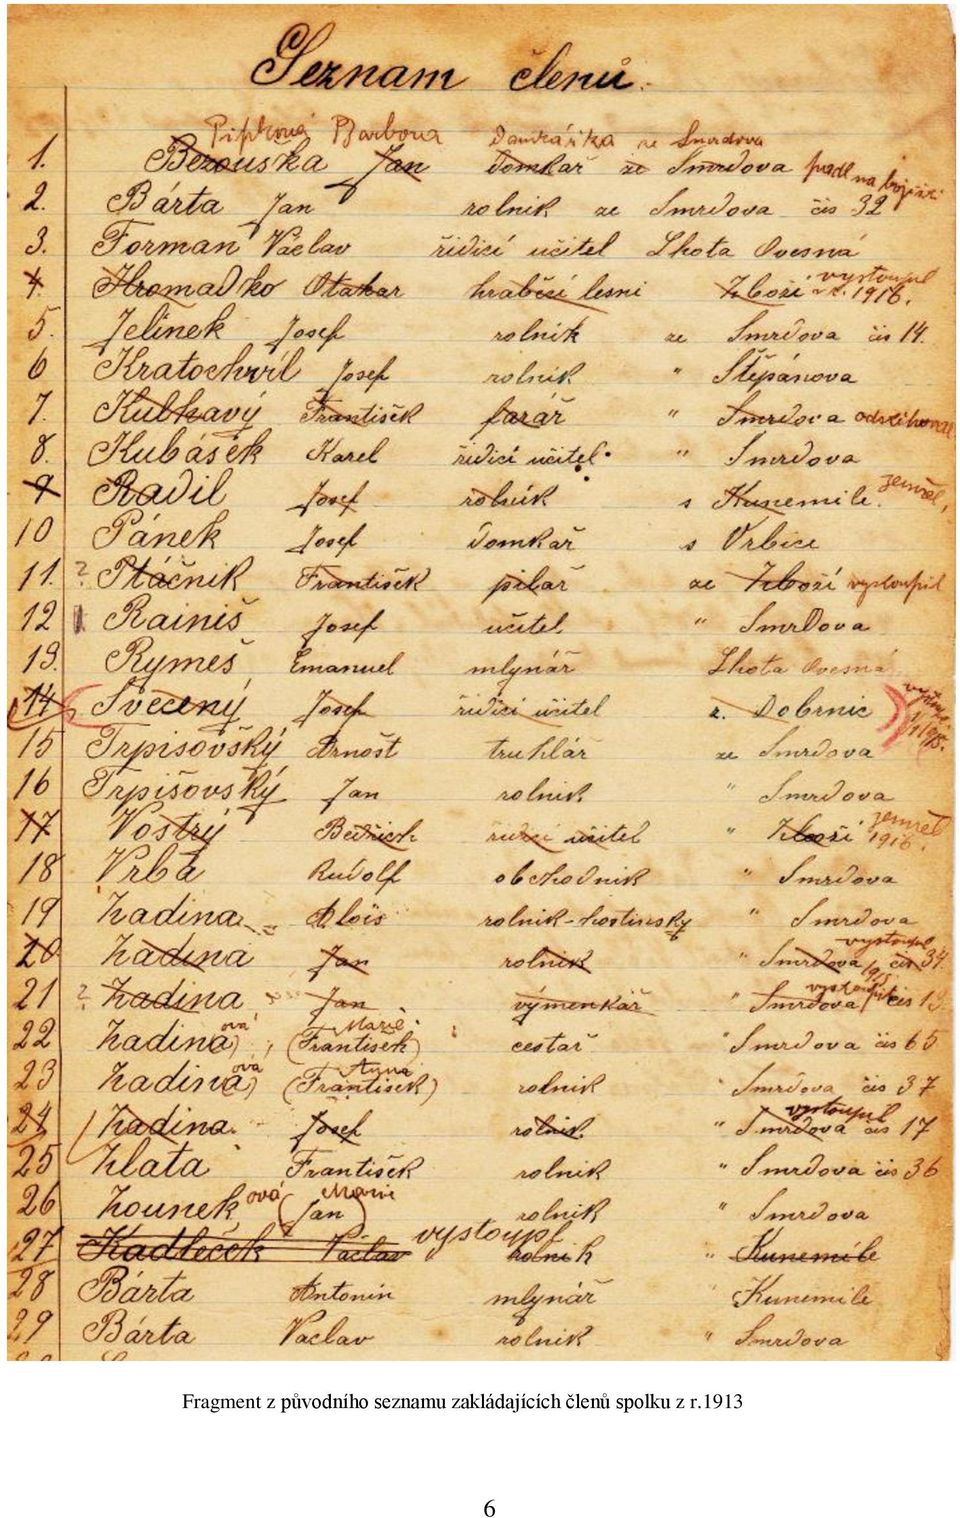 Seznam členů.
Pipková Barbora Domkářka ze Smrdova
1. Berouška Jan Domkař ze Smrdova padl na bojišti
2. Bárta Jan rolnik ze Smrdova čis 32
3. Forman Václav řidicí učitel Lhota Ovesná
4. Hromadko Otakar hraběcí lesni Zboží vystoupil 1916.
5. Jelínek Josef rolník ze Smrdova čis 14.
6 Kratochvíl Josef rolnik " Štěpánova
7. Kubkavý František farář " Smrdova odstěhoval
8. Kubásek Karel řidicí učitel " Smrdova
9 Radil Josef rolník s Kunemile. zemřel,
10 Pánek Josef Domkař s Vrbice
11. ? Ptáčnik František pilař ze Zboží vystoupil
12 Rainiš Josef učitel " Smrdova
13. Rymeš Emanuel mlynář Lhota Ovesná
14 Svěcený Josef řidicí učitel z. Dobrnic
15 Trpišovský Arnošt truhlář ze Smrdova
16 Trpišovský Jan rolnik " Smrdova
17 Vostrý Bedřich řidicí učitel " Zboží zemřel 1916.
18 Vrba Rudolf obchodnik " Smrdova
19 Zadina Alois rolnik-hostinský " Smrdova
20. Zadina Jan rolnik " Smrdova čis 34. vystoupil 1915
21 ? Zadina Jan výmenkář " Smrdova čis 19. vystoupil
22 Zadina)ová, (František) Marie cestař " Smrdova čis 65
23 Zadina)ová (František) Anna rolnik " Smrdova čis 37
24 Zadina. Josef rolnik. " Smrdova čis 17 vystoupil
25 Zlata František rolnik " Smrdova čis 36
26 Zounek,ová (Jan) Marie rolnik " Smrdova
27 Kadleček Václav vystoupil rolnik " Kunemile
28 Bárta Antonin mlynář Kunemile
29 Bárta Vaclav rolnik " Smrdova
Fragment z původního seznamu zakládajících členů spolku z r.1913
6